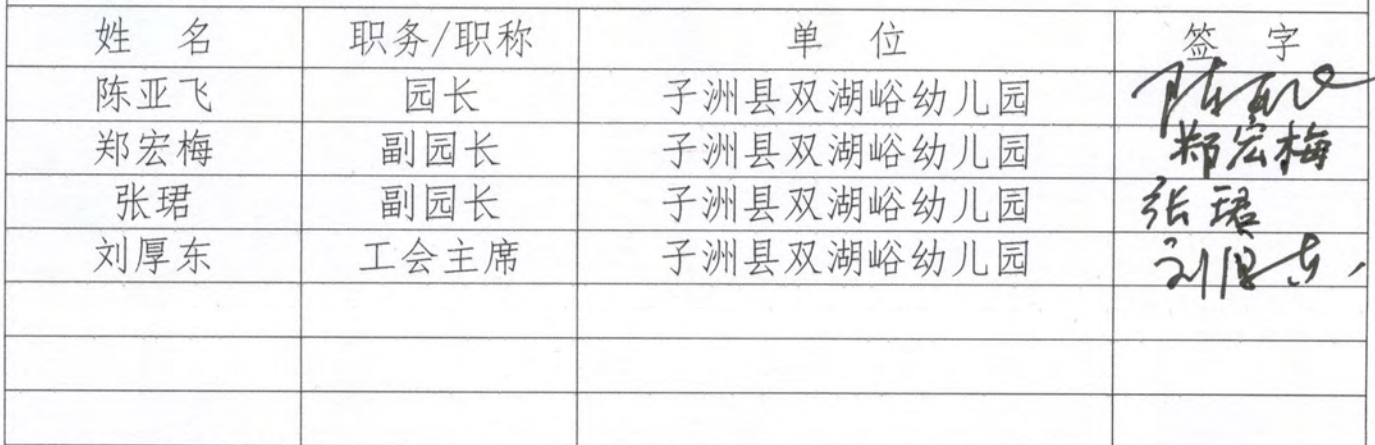 姓 名 职务/职称 单 位 签 字
陈亚飞 园长 子洲县双湖峪幼儿园 陈亚飞
郑宏梅 副园长 子洲县双湖峪幼儿园 郑宏梅
张珺 副园长 子洲县双湖峪幼儿园 张珺
刘厚东 工会主席 子洲县双湖峪幼儿园 刘厚东